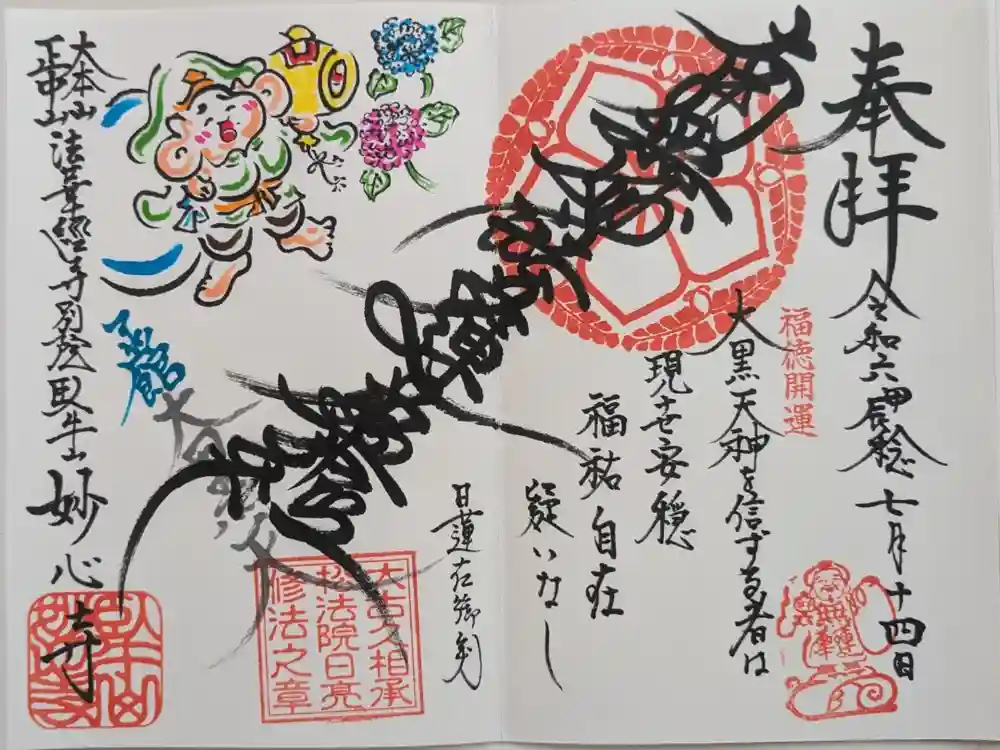 奉拝
令和六甲辰稔七月十四日
福徳開運
大黒天神を信ずる者は
現世安穏
福祐自在
疑いなし
南無妙法蓮華経
日蓮在御判
大古久相承
松法院日亮
修法之章
大本山
法華経寺別院 妙心寺